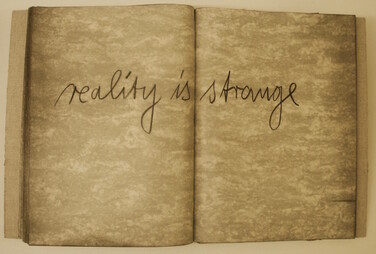 reality is strange